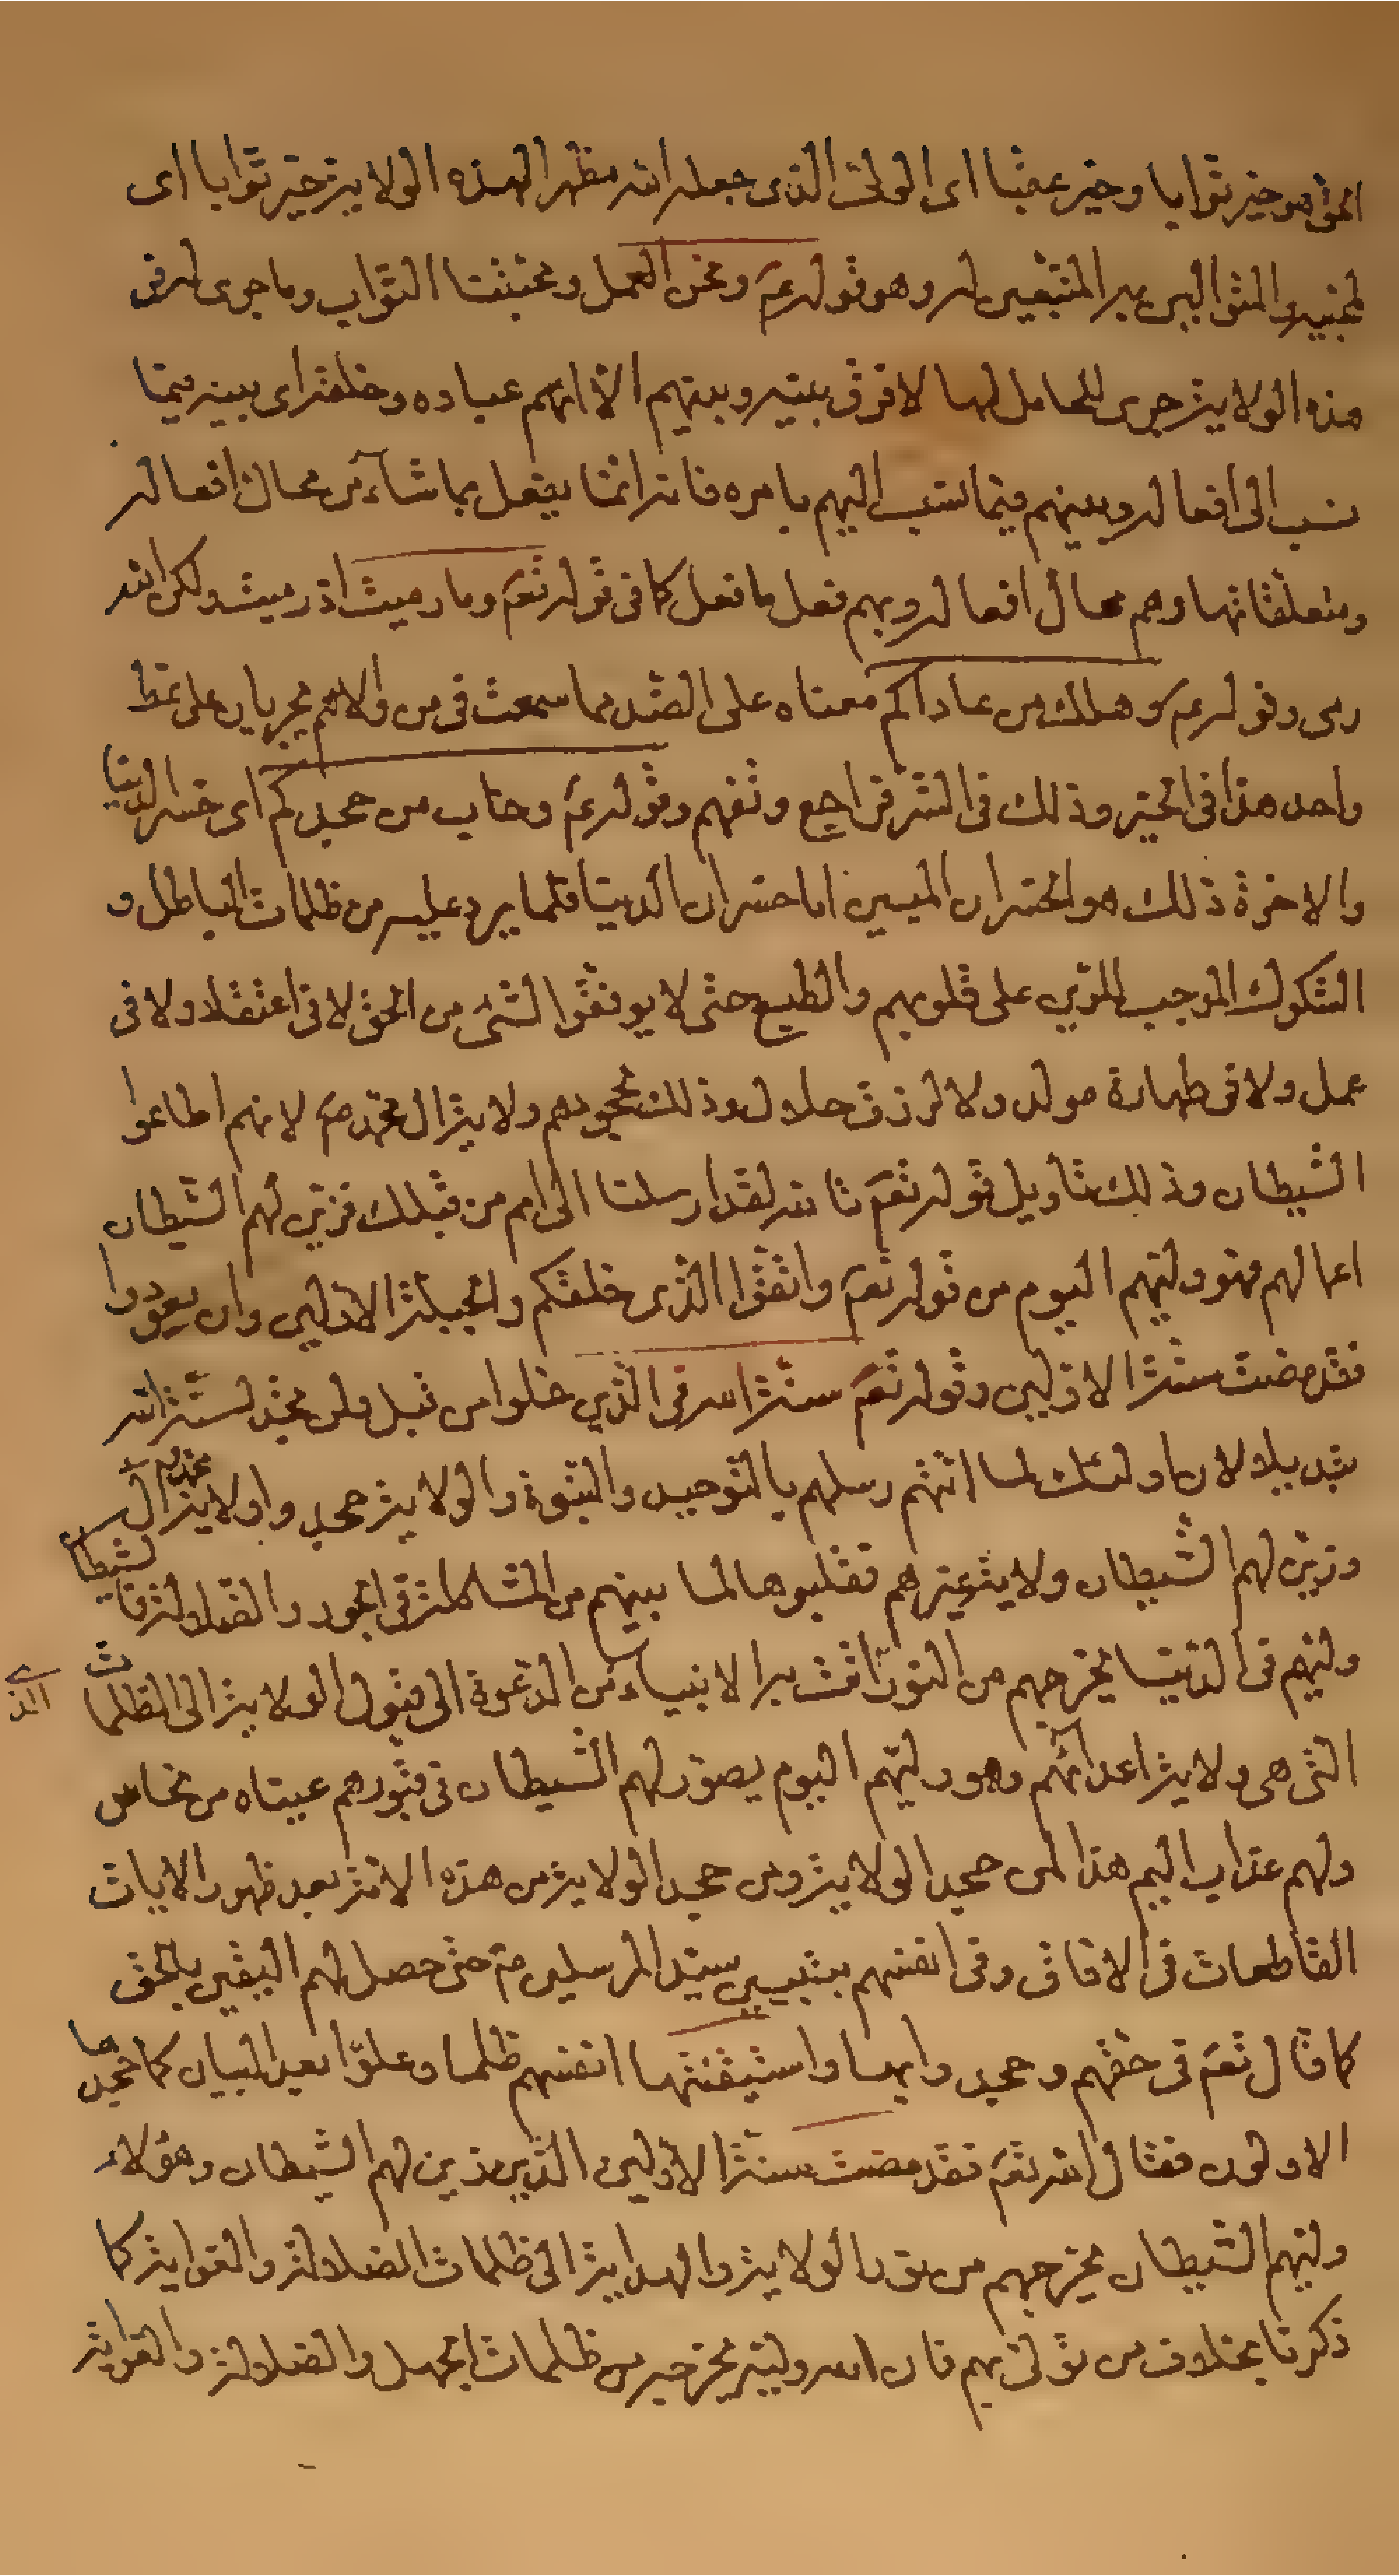 الحق هو خير ثوابا وخير عقبا اى الولى الذى جعله الله مظهرا لهذه الولاية خير ثوابا اى
لمحبيه المتوالين به المتبعين له وهو قوله عم ونحن العمل ومحبتنا الثواب وما جرى له فى
هذه الولاية جرى للحامل لها لا فرق بينه وبينهم الا انهم عباده وخلقه اى بينه فيما
نسب الى افعاله وبينهم فيما نسب اليهم بامره فانه انما يفعل بما شاء من محال افعاله
ومتعلقاتها وهم محال افعاله وبهم فعل ما فعل كما فى قوله تعم وما رميت اذ رميت ولكن الله
رمى وقوله عم وهلك من عاداكم معناه على الضد مما سمعت فى من والاهم يجريان على نمط
واحد هذا فى الخير وذلك فى الشر فراجع وتفهم وقوله عم وخاب من جحدكم اى خسر الدنيا
والاخرة ذلك هو الخسران المبين اما خسران الدنيا فلما يرد عليه من ظلمات الباطل و
الشكوك الموجب للرين على قلوبهم والطبع حتى لا يوفقوا لشئ من الحق لا فى اعتقاد ولا فى
عمل ولا فى طهارة مولد ولا لرزق حلال وذلك بجحودهم ولاية ال محمد ص لانهم اطاعوا
الشيطان وذلك تاويل قوله تعم تالله لقد ارسلنا الى امم من قبلك فزين لهم الشيطان
اعمالهم فهو وليهم اليوم من قوله تعم واتقوا الذى خلقكم والجبلة الاولين وان يعودوا
فقد مضت سنة الاولين وقوله تعم سنة الله فى الذين خلوا من قبل ولن تجد لسنة الله
تبديلا لان اولئك لما اتتهم رسلهم بالتوحيد والنبوة والولاية جحدوا ولاية ال محمد
وزين لهم الشيطان ولاية غيرهم فقلبوها لما بينهم من المشاكلة فى الجحود والضلالة فالشيطان
وليهم فى الدنيا يخرجهم من النور الذى اتت به الانبياء من الدعوة الى قبول الولاية الى الظلمات
التى هى ولاية اعدائهم وهو وليهم اليوم يصور لهم الشيطان فى قبورهم عيناه من نحاس
ولهم عذاب اليم هذا لمن جحد الولاية ومن جحد الولاية من هذه الامة بعد ظهور الايات
القاطعات فى الافاق وفى انفسهم بتبيين سيد المرسلين ص حتى حصل لهم اليقين بالحق
كما قال تعم فى حقهم وجحدوا بها واستيقنتها انفسهم ظلما وعلوا بعد البيان كما جحدها
الاولون فقال الله تعم فقد مضت سنة الاولين الذين زين لهم الشيطان وهؤلاء
وليهم الشيطان يخرجهم من نور الولاية والهداية الى ظلمات الضلالة والغواية كما
ذكرنا بخلاف من تولى بهم فان الله وليه يخرجه من ظلمات الجهل والضلالة والغواية